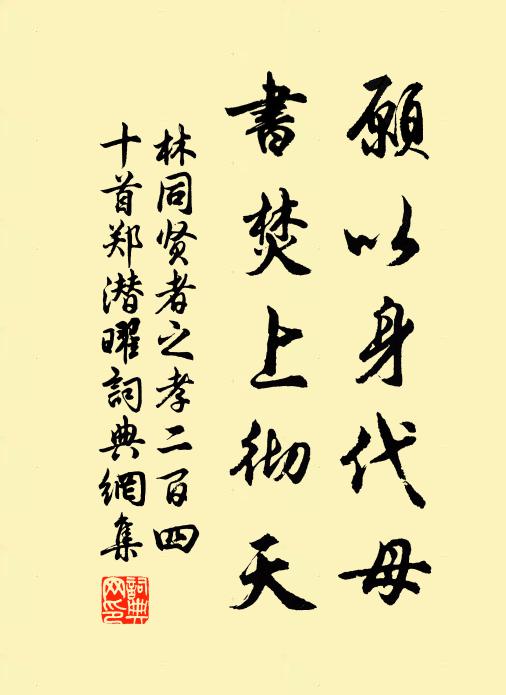 願以身代母
書焚上彻天
林同贤者之孝二百四
十首郑潜曜詞典網集
詞典网印